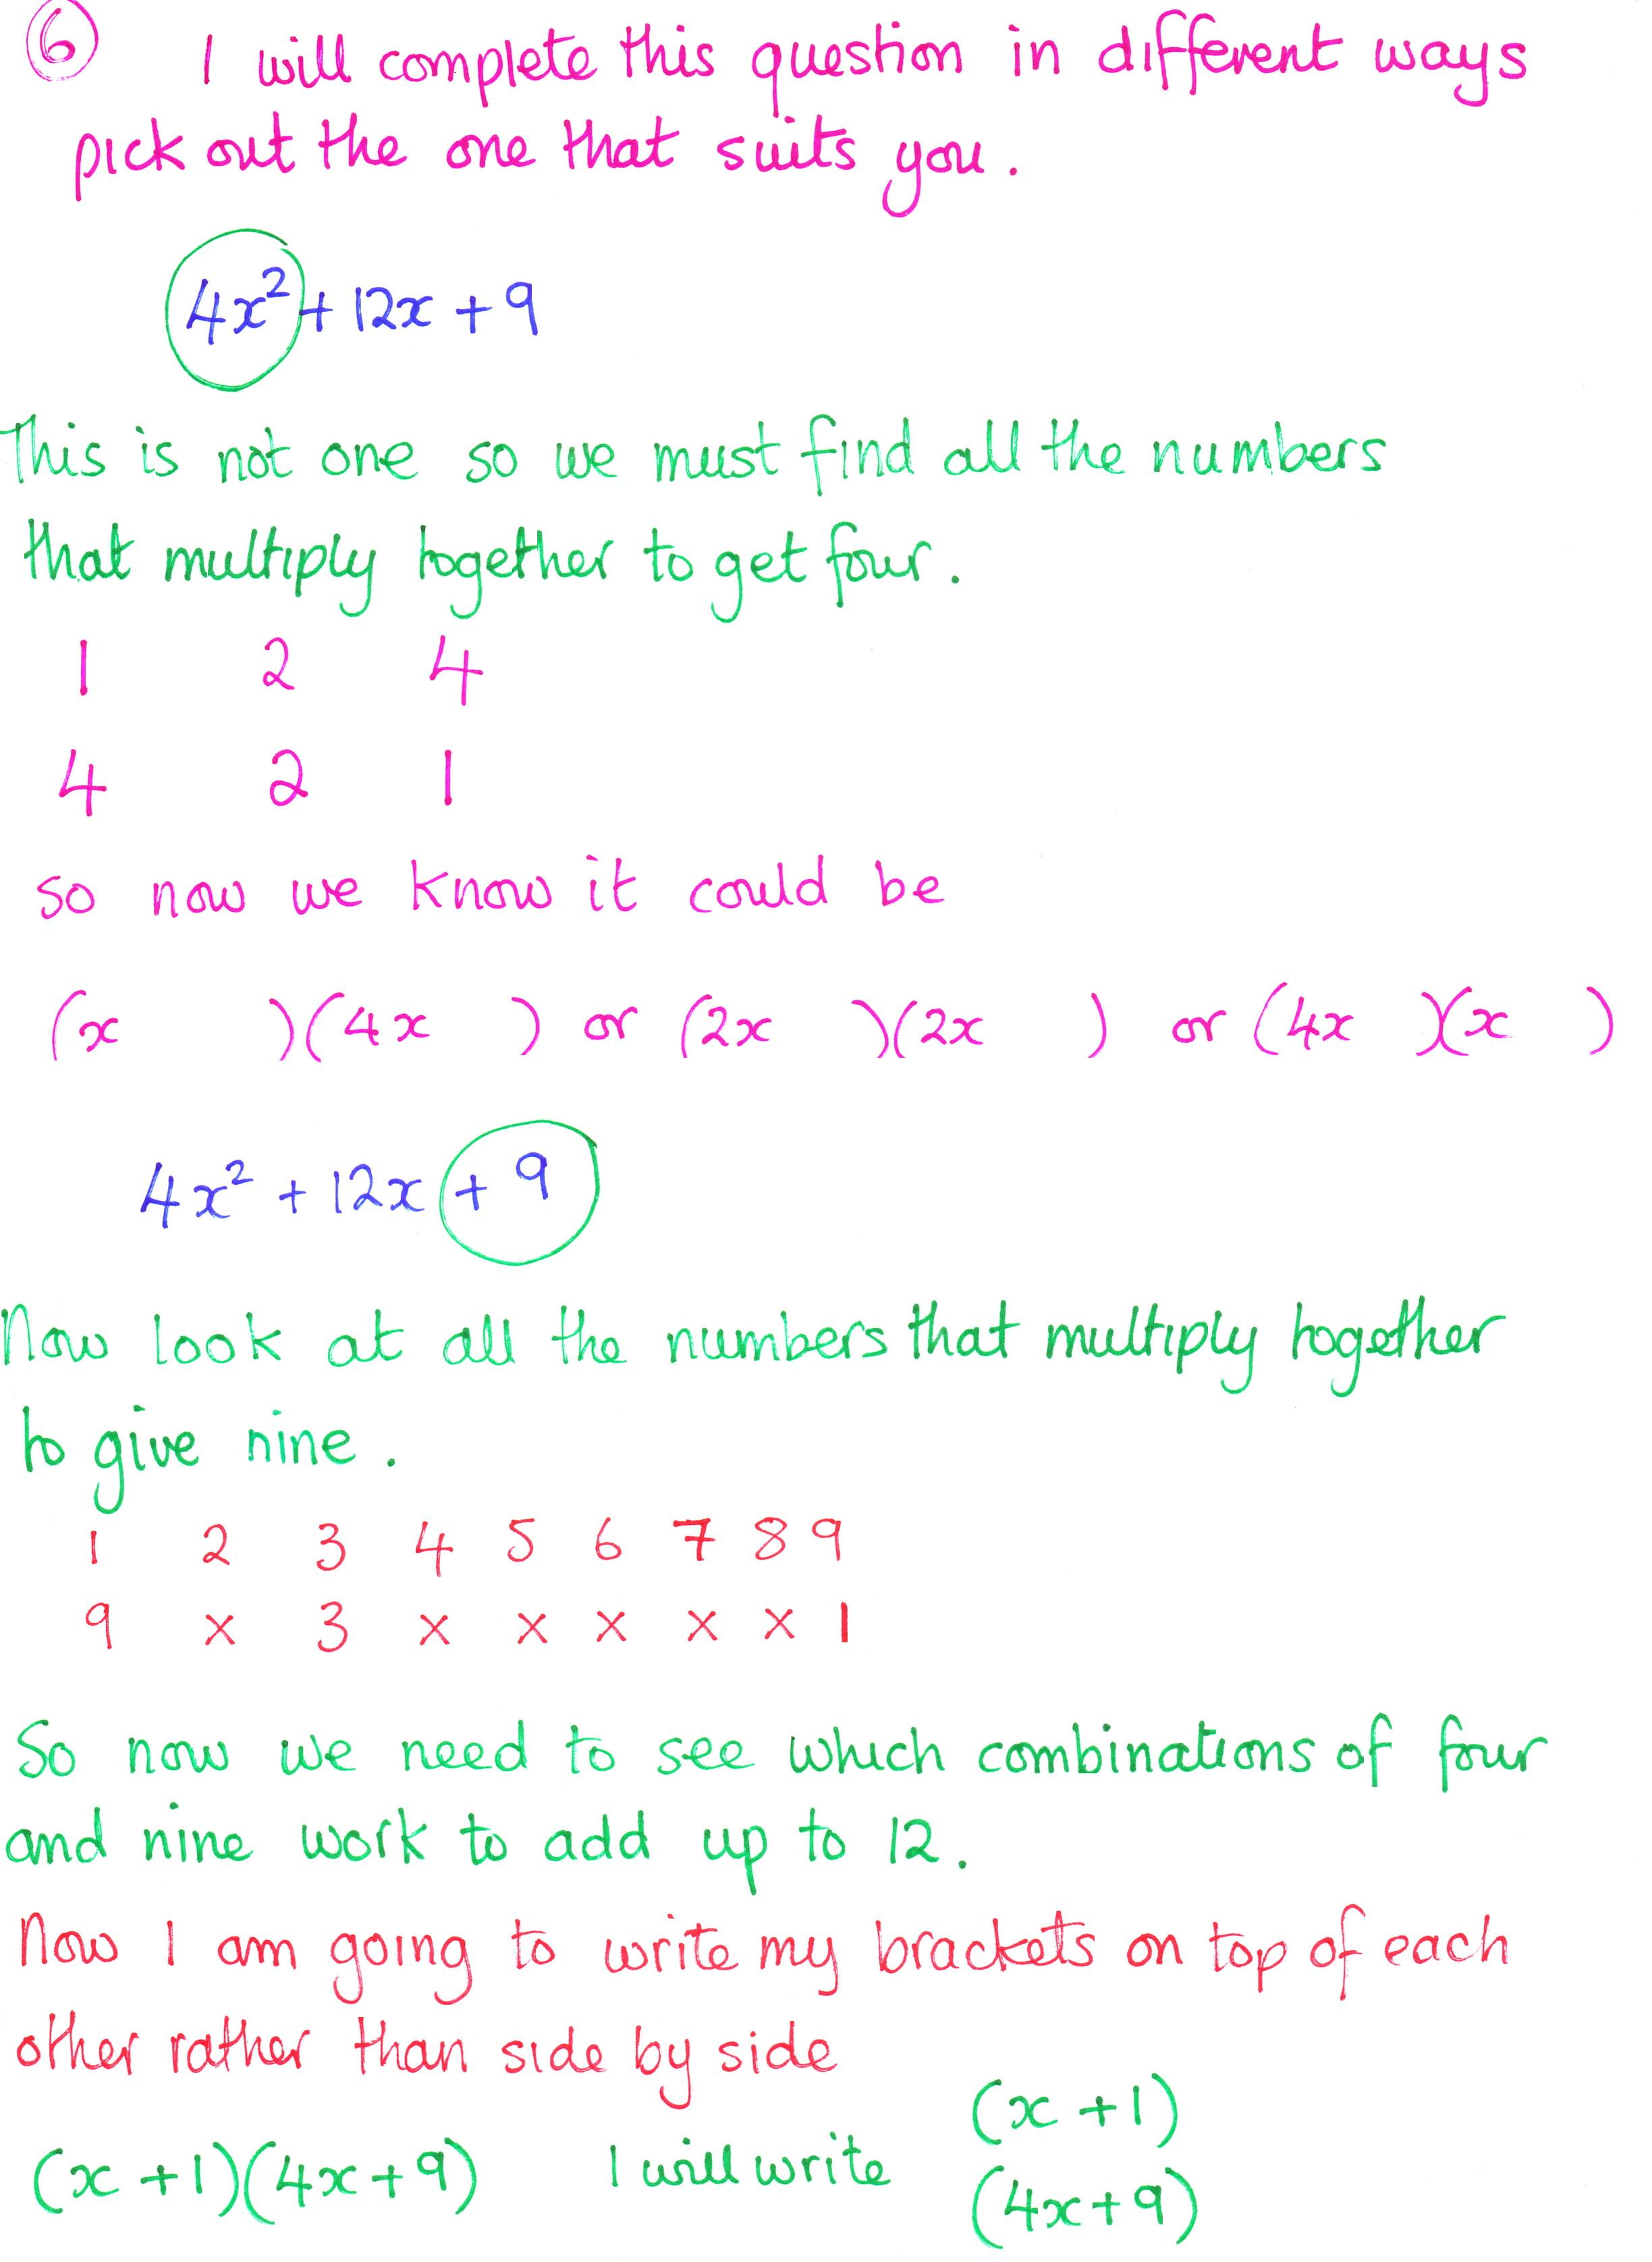 6 I will complete this question in different ways
pick out the one that suits you.
4x² + 12x + 9
This is not one so we must find all the numbers
that multiply together to get four.
1 2 4
4 2 1
so now we know it could be
(x )(4x ) or (2x )(2x ) or (4x )(x )
4x² + 12x + 9
Now look at all the numbers that multiply together
to give nine.
1 2 3 4 5 6 7 8 9
9 × 3 × × × × × 1
So now we need to see which combinations of four
and nine work to add up to 12.
Now I am going to write my brackets on top of each
other rather than side by side
(x + 1)(4x + 9) I will write (x + 1)
(4x + 9)